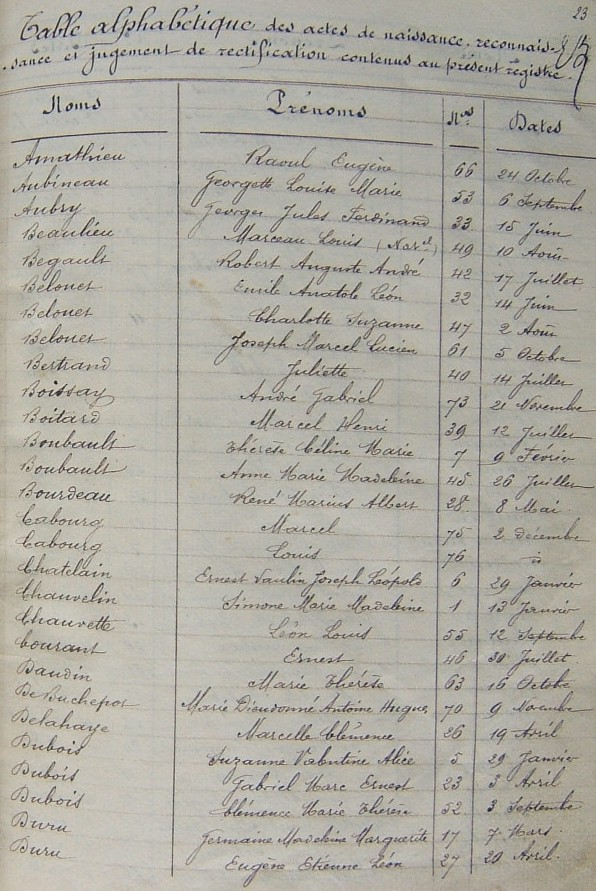 23
Table alphabétique des actes de naissance, reconnais-
sance et jugement de rectification contenus au présent registre.
Noms Prénoms Nos Dates
Amathieu Raoul Eugène 66 24 Octobre
Aubineau Georgette Louise Marie 53 6 Septembre
Aubry Georges Jules Ferdinand 33 15 Juin
Beaulieu Marceau Louis (Nat.el) 49 10 Août
Begault Robert Auguste André 42 17 Juillet
Belouet Emile Anatole Léon 32 14 Juin
Belouet Charlotte Suzanne 47 2 Août
Belouet Joseph Marcel Lucien 61 5 Octobre
Bertrand Juliette 40 14 Juillet
Boissay André Gabriel 73 21 Novembre
Boitard Marcel Henri 39 12 Juillet
Boubault Thérèse Céline Marie 7 9 Février
Boubault Anne Marie Madeleine 45 26 Juillet
Bourdeau René Marius Albert 28 8 Mai
Cabourg Marcel 75 2 décembre
Cabourg Louis 76 id
Chatelain Ernest Paulin Joseph Léopold 6 29 Janvier
Chauvelin Simone Marie Madeleine 1 13 Janvier
Chauvette Léon Louis 55 12 Septembre
Courant Ernest 46 30 Juillet
Daudin Marie Thérèse 63 16 Octobre
De Buchepot Marie Dieudonné Antoine Hugues 70 9 Novembre
Delahaye Marcelle Clémence 26 19 Avril
Dubois Suzanne Valentine Alice 5 29 Janvier
Dubois Gabriel Marc Ernest 23 3 Avril
Dubois Clémence Marie Thérèse 52 3 Septembre
Duru Germaine Madeleine Marguerite 17 7 Mars
Duru Eugène Etienne Léon 27 20 Avril